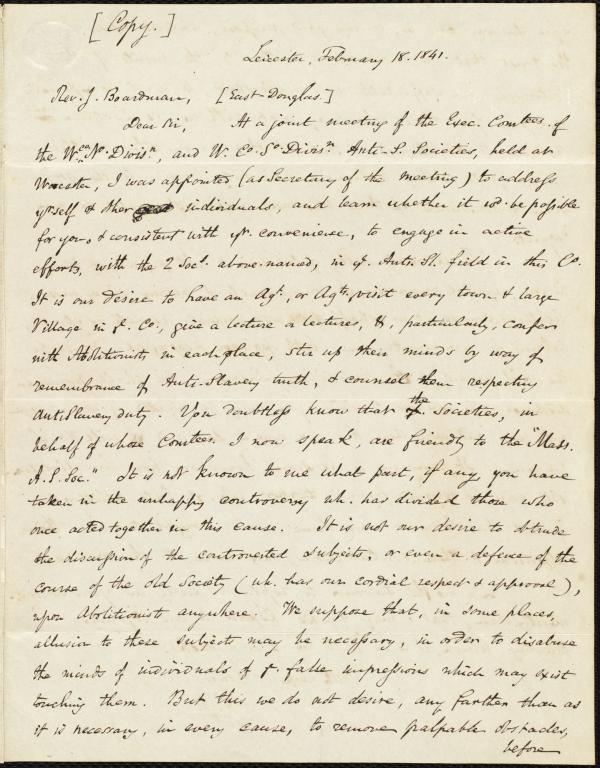 [Copy.]
Leicester, February 18. 1841.
Rev. J. Boardman, [East-Douglas.]
Dear Sir, At a joint meeting of the Exec. Comtees. of
the Wen. No. Divisn, and W. Co. So. Divisn Anti-S. Societies, held at
Worcester, I was appointed (as Secretary of the meeting) to address
yrself & other individuals, and learn whether it wd. be possible
for you, & consistent with yr. convenience, to engage in active
efforts, with the 2 Socs. above-named, in ye. Anti-Sl. field in this Co.
It is our desire to have an Agt., or Agts. visit every town & large
Village in ye. Co., give a lecture or lectures, &, particularly, confer
with Abolitionists in each place, stir up their minds by way of
remembrance of Anti-Slavery truth, & counsel them respecting
AntiSlavery duty. You doubtless know that the Societies, in
behalf of whose Comtees. I now speak, are friendly to the "Mass.
A. S. Soc." It is not known to me what part, if any, you have
taken in the unhappy controversy wh. has divided those who
once acted together in this cause. It is not our desire to obtrude
the discussion of the controverted subjects, or even a defence of the
course of the old Society (wh. has our cordial respect & approval),
upon Abolitionists anywhere. We suppose that, in some places,
allusion to these subjects may be necessary, in order to disabuse
the minds of individuals of ye. false impressions which may exist
touching them. But this we do not desire, any farther than as
it is necessary, in every cause, to remove palpable obstacles,
before